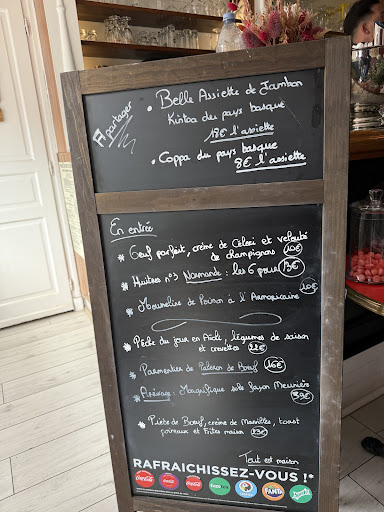 A partager
• Belle Assiette de Jambon
Kintoa du pays basque
18€ l'assiette
• Coppa du pays basque
8€ l'assiette
En entrée
* Oeuf parfait, crème de Céleri et velouté
de champignons 10€
* Huitres n°3 Normande : les 6 pour 13€
* Mousseline de Poisson à l'Armoricaine 10€
* Pêche du jour en Aïoli, légumes de saison
et crevettes 22€
* Parmentier de Paleron de Boeuf 16€
* Arrivage : Magnifique sole façon Meunière
39€
* Pièce de Boeuf, crème de Maroilles, toast
poireaux et Frites maison 23€
Tout est maison
RAFRAICHISSEZ-VOUS !*
Coca-Cola
Coca-Cola
Coca-Cola
FUZETEA
FANTA
Sprite